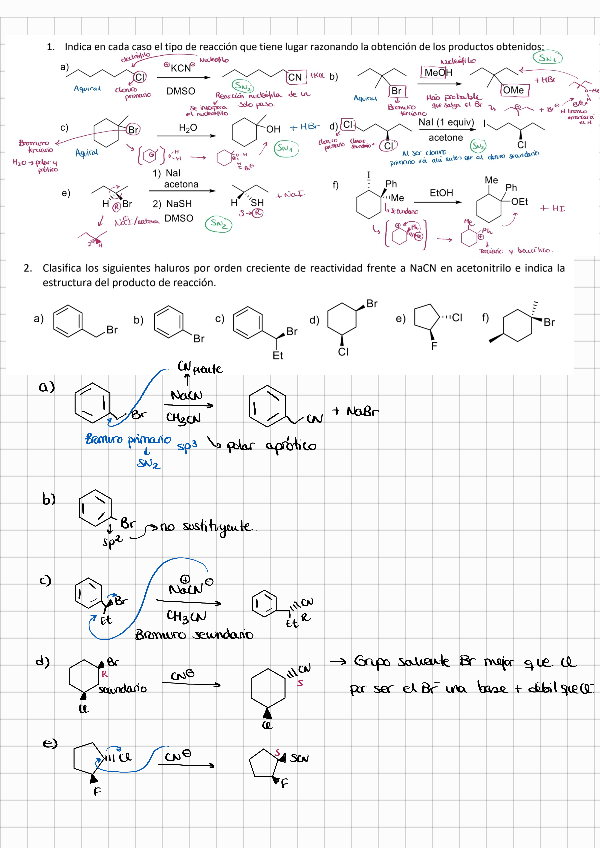 1. Indica en cada caso el tipo de reacción que tiene lugar razonando la obtención de los productos obtenidos:
electrófilo
Nucleófilo
Nucleófilo
SN1
a)
Cl
KCN
DMSO
SN2
CN
+KCl
b)
MeOH
Br
OMe
+ HBr
Aquiral
cloruro primario
Reacción nucleófila de un solo paso.
Aquiral
Bromuro terciario
Más probable que salga el Br
c)
Br
H2O
OH
+ HBr
SN1
d)
Cl
Cl
NaI (1 equiv)
acetone
SN2
I
Cl
Bromuro terciario
H2O → polar y prótico
Aquiral
cloruro primario
cloruro secundario
Al ser cloruro primario
e)
H
Br
R
1) NaI
acetona
2) NaSH
DMSO
H
SH
+ NaI
S→R
SN2
NaI / acetona
f)
I
Ph
Me
EtOH
Me
Ph
OEt
+ HI
secundario
Ph
Terciario y bencílico.
2. Clasifica los siguientes haluros por orden creciente de reactividad frente a NaCN en acetonitrilo e indica la
estructura del producto de reacción.
a)
Br
b)
Br
c)
Br
Et
d)
Br
Cl
e)
Cl
F
f)
Br
CN fuerte
a)
Br
NaCN
CH3CN
CN
+ NaBr
Bromuro primario sp3
polar aprótico
SN2
b)
Br
→ no sustituyente.
sp2
c)
Br
Et
NaCN
CH3CN
CN
Et R
Bromuro secundario
d)
Br
R
secundario
Cl
CN⊖
CN
S
Cl
→ Grupo saliente Br mejor que Cl
por ser el Br⁻ una base + débil que Cl⁻
e)
Cl
F
CN⊖
S
SCN
F